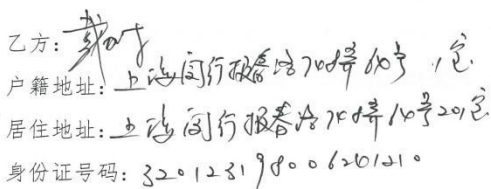 乙方：戴
户籍地址：上海闵行报春路748弄 号 室
居住地址：上海闵行报春路748弄 号201室
身份证号码：320123198006201210